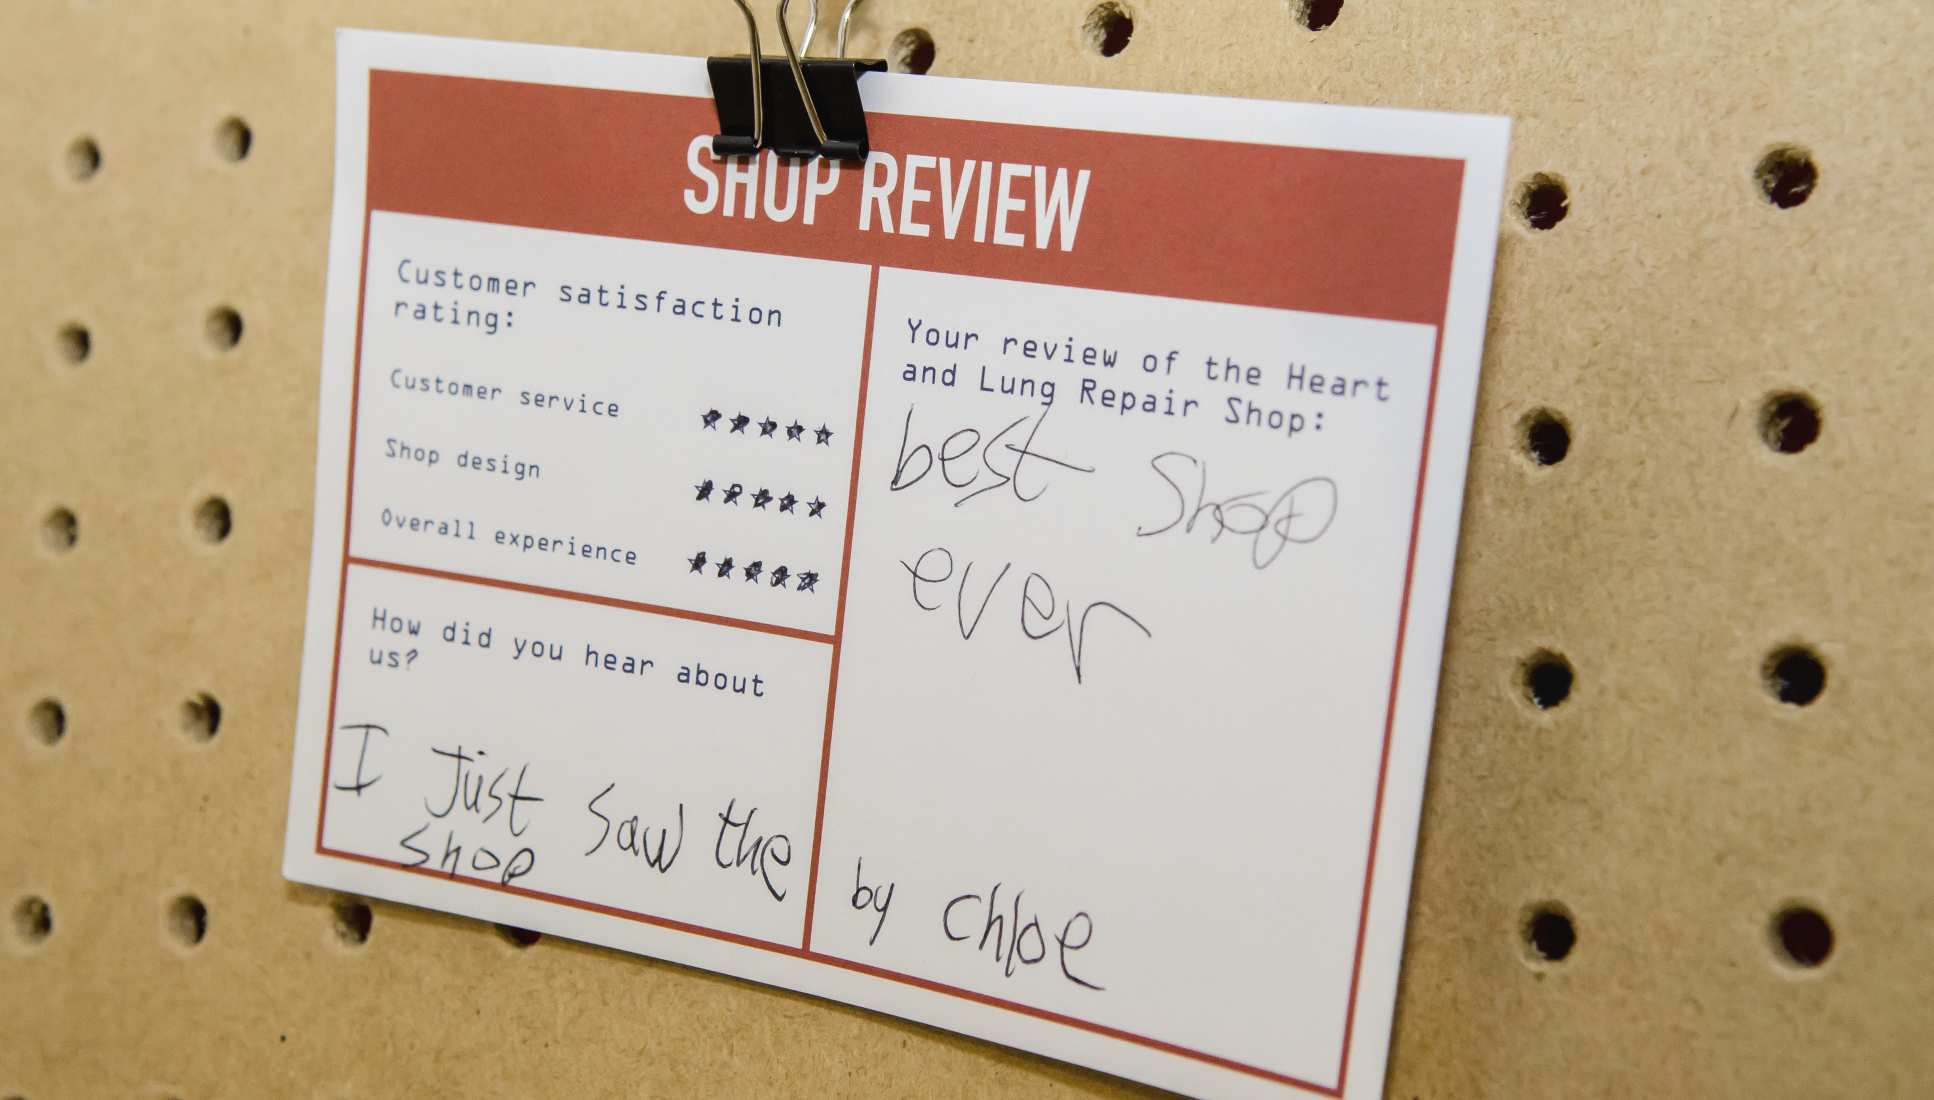 SHOP REVIEW
Customer satisfaction
rating:
Customer service ★★★★★
Shop design ★★★★★
Overall experience ★★★★★
How did you hear about
us?
I Just saw the
shop
Your review of the Heart
and Lung Repair Shop:
best Shop
ever
by Chloe